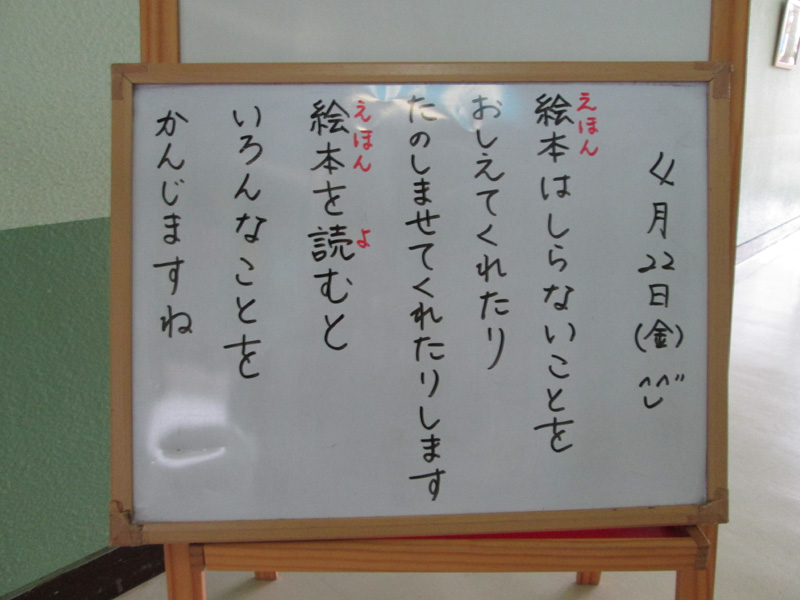 4月22日(金) ^^
えほん
絵本はしらないことを
おしえてくれたり
たのしませてくれたりします
えほん よ
絵本を読むと
いろんなことを
かんじますね